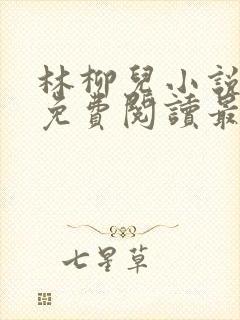 林柳兒小說
免費閱讀最
七星草